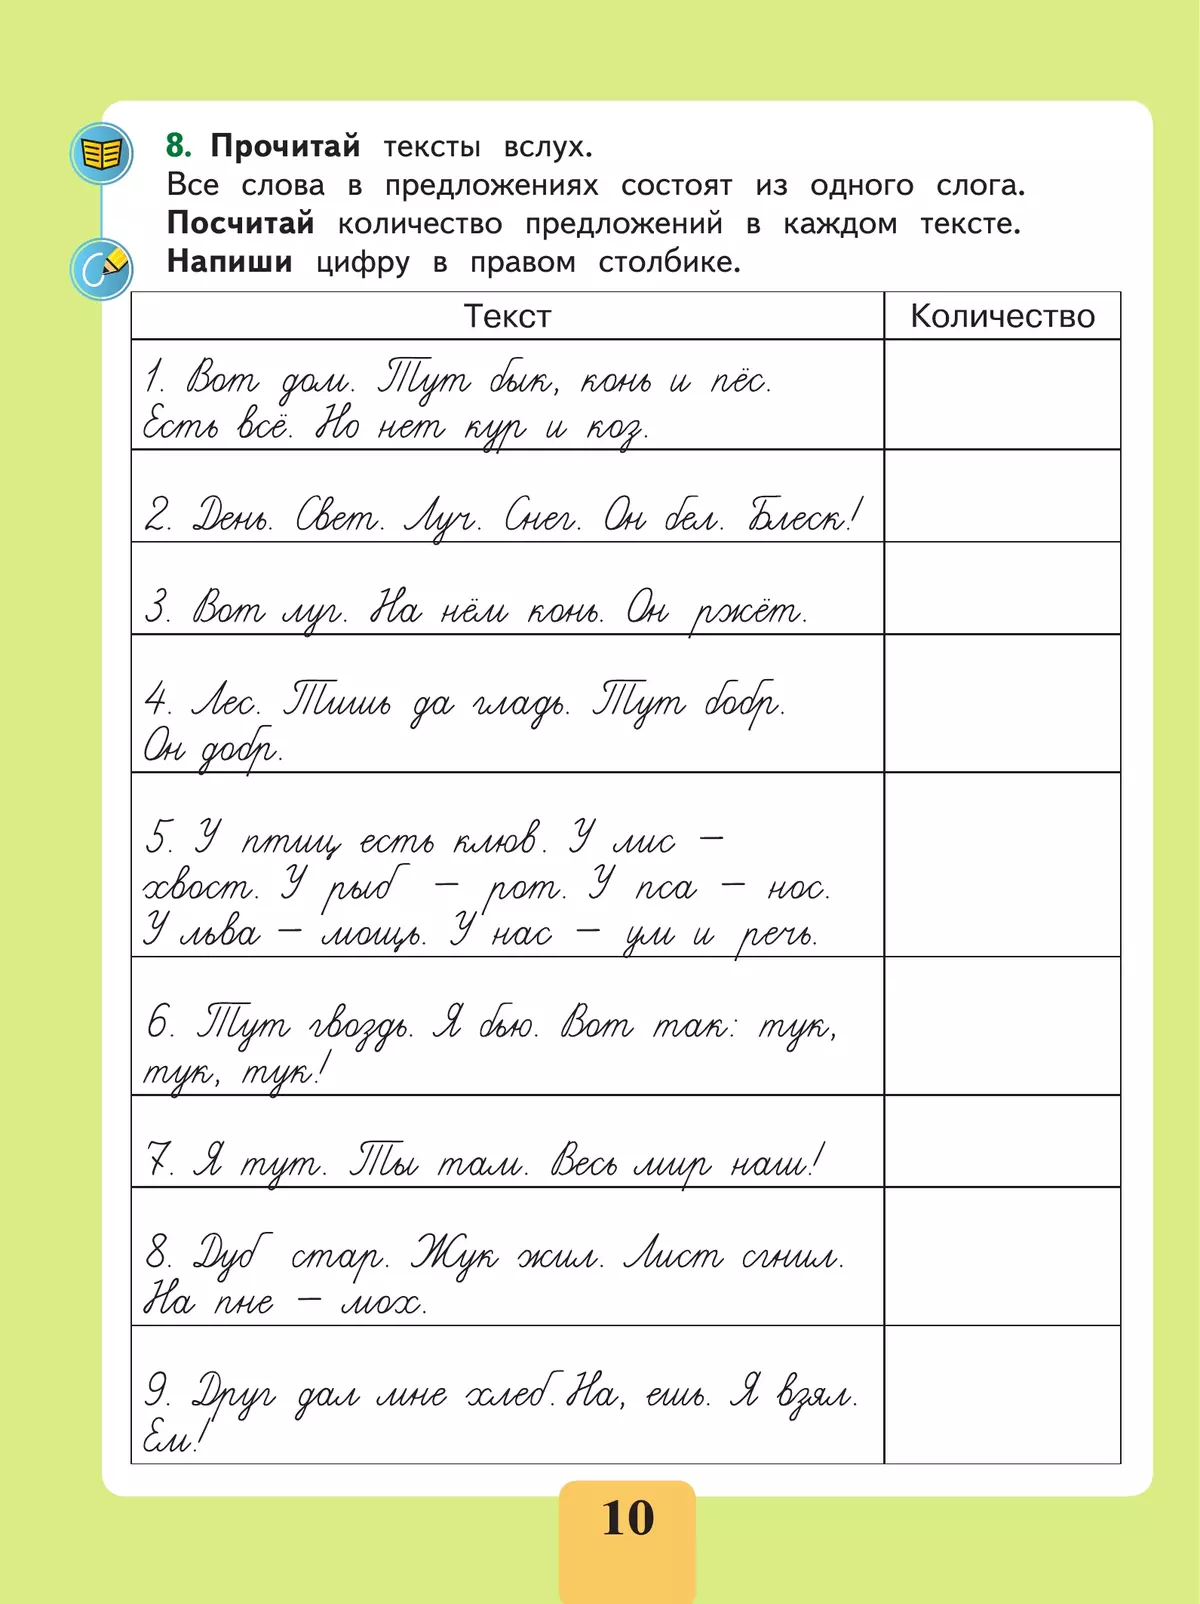 8. Прочитай тексты вслух.
Все слова в предложениях состоят из одного слога.
Посчитай количество предложений в каждом тексте.
Напиши цифру в правом столбике.
Текст Количество
1. Вот дом. Тут бык, конь и пёс.
Есть всё. Но нет кур и коз.
2. День. Свет. Луч. Снег. Он бел. Блеск!
3. Вот луг. На нём конь. Он ржёт.
4. Лес. Тишь да гладь. Тут бобр.
Он добр.
5. У птиц есть клюв. У лис –
хвост. У рыб – рот. У пса – нос.
У льва – мощь. У нас – ум и речь.
6. Тут гвоздь. Я бью. Вот так: тук,
тук, тук!
7. Я тут. Ты там. Весь мир наш!
8. Дуб стар. Жук жил. Лист сгнил.
На пне – мох.
9. Друг дал мне хлеб. На, ешь. Я взял.
Ем!
10